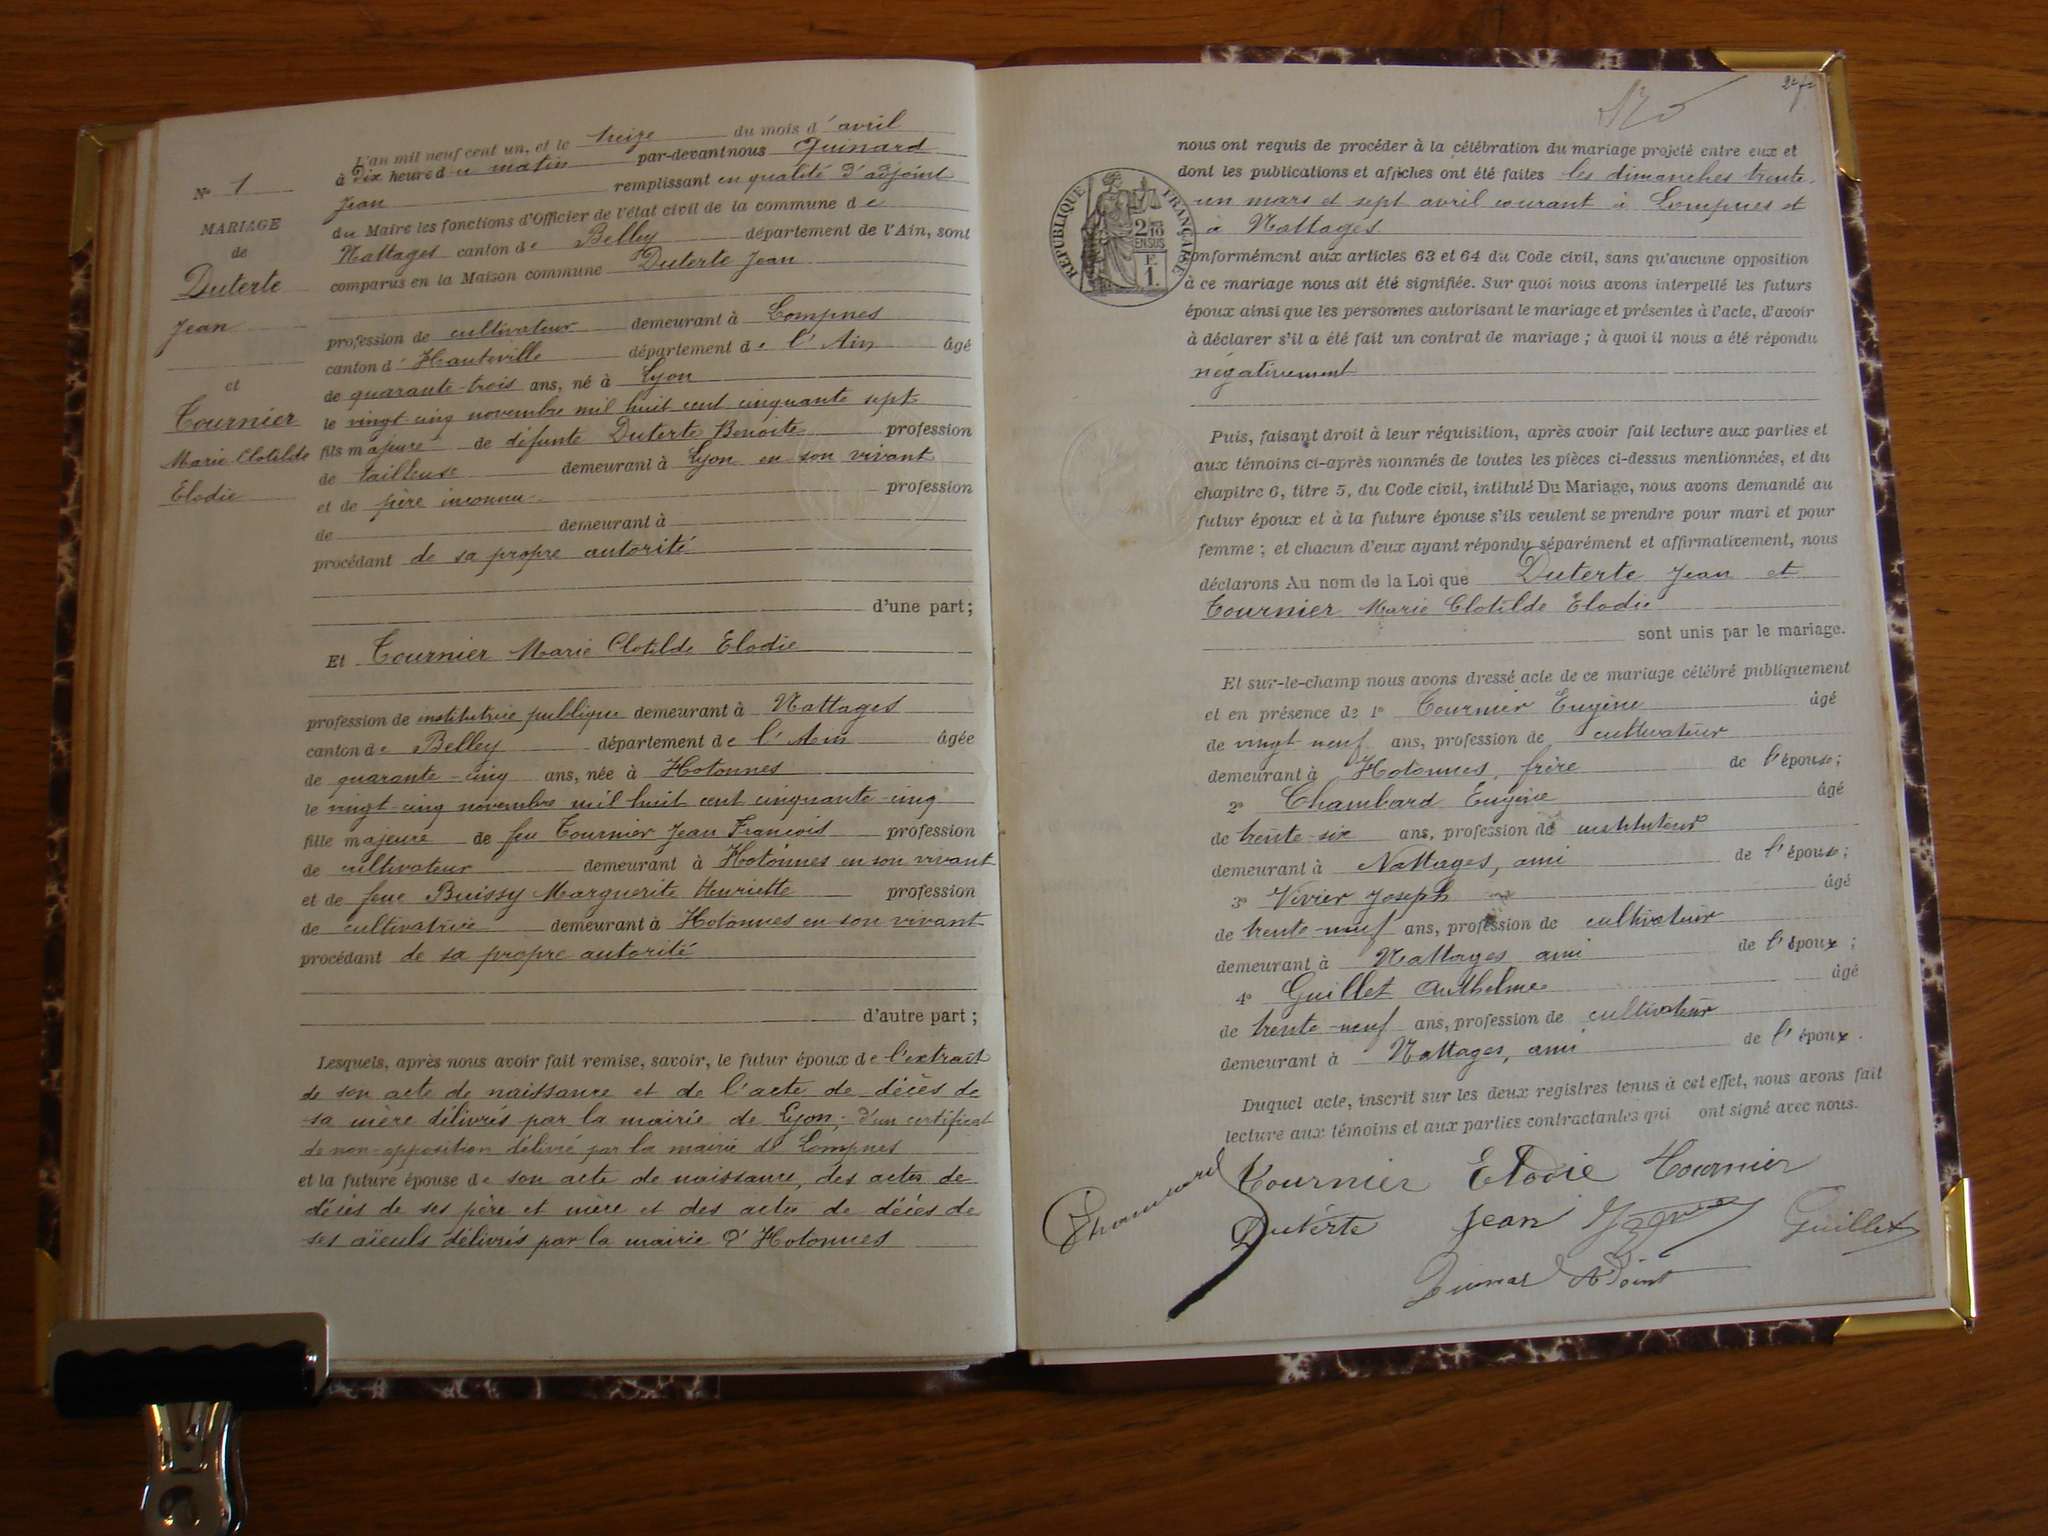 L'an mil neuf cent un, et le treize du mois d'avril
à Dix heure du matin par-devant nous Quinard
Jean remplissant en qualité d'adjoint
du Maire les fonctions d'Officier de l'état civil de la commune de
Nattages canton de Belley département de l'Ain, sont
comparus en la Maison commune Duterte Jean
profession de cultivateur demeurant à Lompnes
canton d'Hauteville département de l'Ain âgé
de quarante-trois ans, né à Lyon
le vingt cinq novembre mil huit cent cinquante sept
fils majeure de défunte Duterte Benoite profession
de tailleuse demeurant à Lyon en son vivant
et de père inconnu profession
de demeurant à
procédant de sa propre autorité
d'une part;
Et Tournier Marie Clotilde Elodie
profession de institutrice publique demeurant à Nattages
canton de Belley département de l'Ain âgée
de quarante-cinq ans, née à Hotonnes
le vingt-cinq novembre mil huit cent cinquante-cinq
fille majeure de feu Tournier Jean François profession
de cultivateur demeurant à Hotonnes en son vivant
et de feue Buissy Marguerite Henriette profession
de cultivatrice demeurant à Hotonnes en son vivant
procédant de sa propre autorité
d'autre part;
Lesquels, après nous avoir fait remise, savoir, le futur époux de l'extrait
de son acte de naissance et de l'acte de décès de
sa mère délivrés par la mairie de Lyon; d'un certificat
de non-opposition délivré par la mairie de Lompnes
et la future épouse de son acte de naissance, des actes de
décès de ses père et mère et des actes de décès de
ses aïeuls délivrés par la mairie d'Hotonnes
No 1
MARIAGE
de
Duterte
Jean
et
Tournier
Marie Clotilde
Elodie
nous ont requis de procéder à la célébration du mariage projeté entre eux et
dont les publications et affiches ont été faites les dimanches trente
un mars et sept avril courant à Lompnes et
à Nattages
conformément aux articles 63 et 64 du Code civil, sans qu'aucune opposition
à ce mariage nous ait été signifiée. Sur quoi nous avons interpellé les futurs
époux ainsi que les personnes autorisant le mariage et présentes à l'acte, d'avoir
à déclarer s'il a été fait un contrat de mariage; à quoi il nous a été répondu
négativement
Puis, faisant droit à leur réquisition, après avoir fait lecture aux parties et
aux témoins ci-après nommés de toutes les pièces ci-dessus mentionnées, et du
chapitre 6, titre 5, du Code civil, intitulé Du Mariage, nous avons demandé au
futur époux et à la future épouse s'ils veulent se prendre pour mari et pour
femme; et chacun d'eux ayant répondu séparément et affirmativement, nous
déclarons Au nom de la Loi que Duterte Jean et
Tournier Marie Clotilde Elodie
sont unis par le mariage.
Et sur-le-champ nous avons dressé acte de ce mariage célébré publiquement
et en présence de 1o Tournier Eugène âgé
de vingt neuf ans, profession de cultivateur
demeurant à Hotonnes, frère de l'épouse;
2o Chambard Eugène âgé
de trente-six ans, profession de instituteur
demeurant à Nattages, ami de l'épouse;
3o Vivier Joseph âgé
de trente-neuf ans, profession de cultivateur
demeurant à Nattages ami de l'époux;
4o Guillet Anthelme âgé
de trente-neuf ans, profession de cultivateur
demeurant à Nattages, ami de l'époux.
Duquel acte, inscrit sur les deux registres tenus à cet effet, nous avons fait
lecture aux témoins et aux parties contractantes qui ont signé avec nous.
Tournier Elodie Tournier
Duterte Jean Guillet
RÉPUBLIQUE FRANÇAISE
2/10
EN SUS
F.
1.